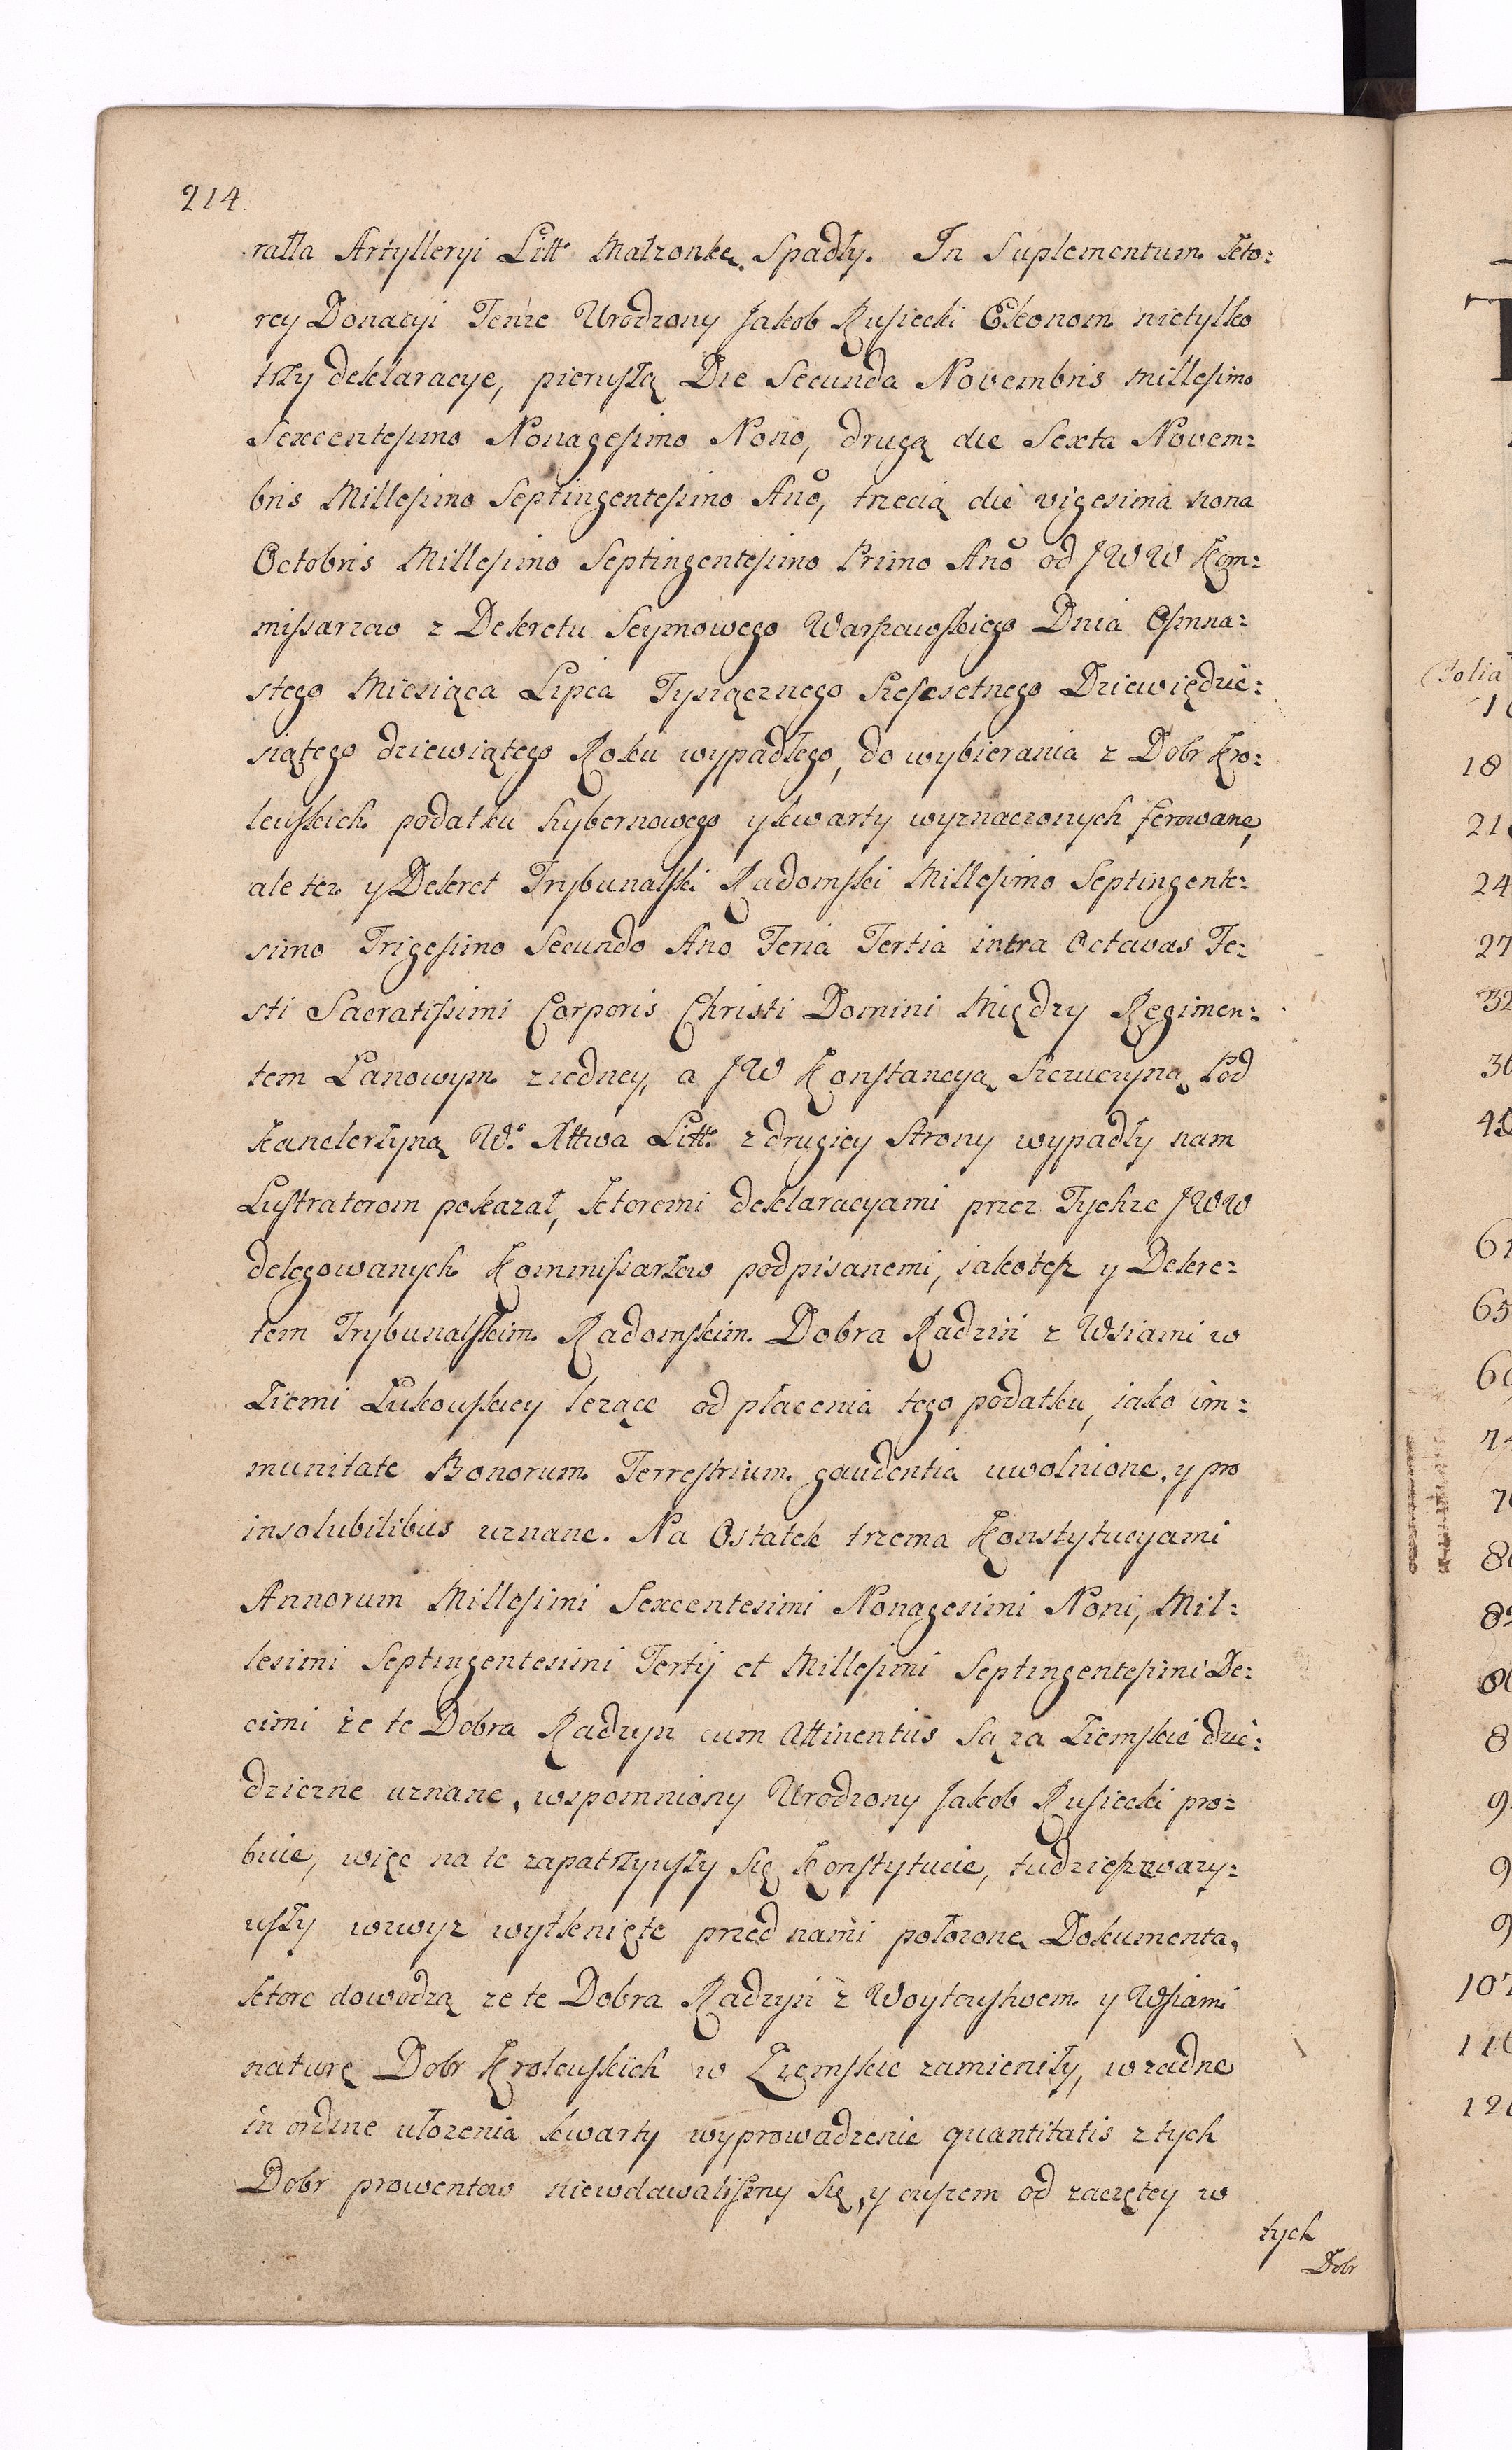 214.
rałła Artylleryi Litt. Małzonkę. Spadły. In Suplementum kto:
rey Donacyi Tenże Urodzony Jakob Rusiecki Ekonom nietylko
trzy deklaracye, pierwszą Die Secunda Novembris Millesimo
Sexcentesimo Nonagesimo Nono, drugą die Sexta Novem:
bris Millesimo Septingentesimo Ano, trzecią die vigesima nona
Octobris Millesimo Septingentesimo Primo Ano od JWW Kom:
missarzow z Dekretu Seymowego Warszawskiego Dnia Osmna:
stego Miesiąca Lipca Tysiącznego Szescsetnego Dziewiędzie:
siątego dziewiątego Roku wypadłego, do wybierania z Dobr Kro:
lewskich podatku hybernowego y kwarty wyznaczonych ferowane,
ale tez y Dekret Trybunalski Radomski Millesimo Septingente:
simo Trigesimo Secundo Ano Feria Tertia intra Octavas Fe:
sti Sacratissimi Corporis Christi Domini Między Regimen:
tem Łanowym z iedney, a JW Konstancyą Szczuczyną Pod
kanclerzyną W. Xttwa Litt. z drugiey strony wypadły nam
Lustratorom pokazał, ktoremi deklaracyami przez Tychże JWW
delegowanych Kommissarzow podpisanemi, iakotesz y Dekre:
tem Trybunalskim Radomskim Dobra Radziń z Wsiami w
Ziemi Łukowskiey lezące od płacenia tego podatku, iako im:
munitate Bonorum Terrestrium gaudentia uwolnione, y pro
insolubilibus uznane. Na Ostatek trzema Konstytucyami
Annorum Millesimi Sexcentesimi Nonagesimi Noni, Mil:
lesimi Septingentesimi Tertij et Millesimi Septingentesimi De:
cimi że te Dobra Radzyn cum Attinentiis Są za Ziemskie dzie:
dziczne uznane, wspomniony Urodzony Jakob Rusiecki pro:
buie, więc na te zapatrzywszy Się Konstytucie, tudziesz zwazy:
wszy wzwyz wytknięte przed nami połozone Dokumenta,
ktore dowodzą ze te Dobra Radzyń z Woytowstwem y Wsiami
naturę Dobr Krolewskich w Ziemskie zamieniły, w zadne
in ordine ułozenia kwarty wyprowadzenie quantitatis z tych
Dobr prowentow niewdawaliszmy Się, y owszem od zaczętey w
tych
Dobr
(Folia
18
21
24
27
32
36
61
65
8
9
9
9
107
116